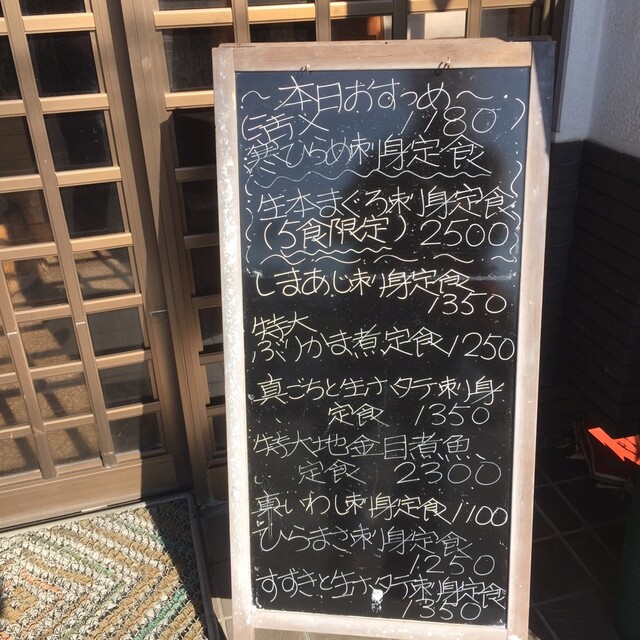 ~本日おすすめ~
活〆 1780
寒ひらめ刺身定食
生本まぐろ刺身定食
(5食限定) 2500
しまあじ刺身定食
1350
特大
ぶりかま煮定食1250
真ごちと生ホタテ刺身
定食 1350
特大地金目煮魚
定食 2300
真いわし刺身定食1100
ひらまさ刺身定食
1250
すずきと生ホタテ刺身定食
1350